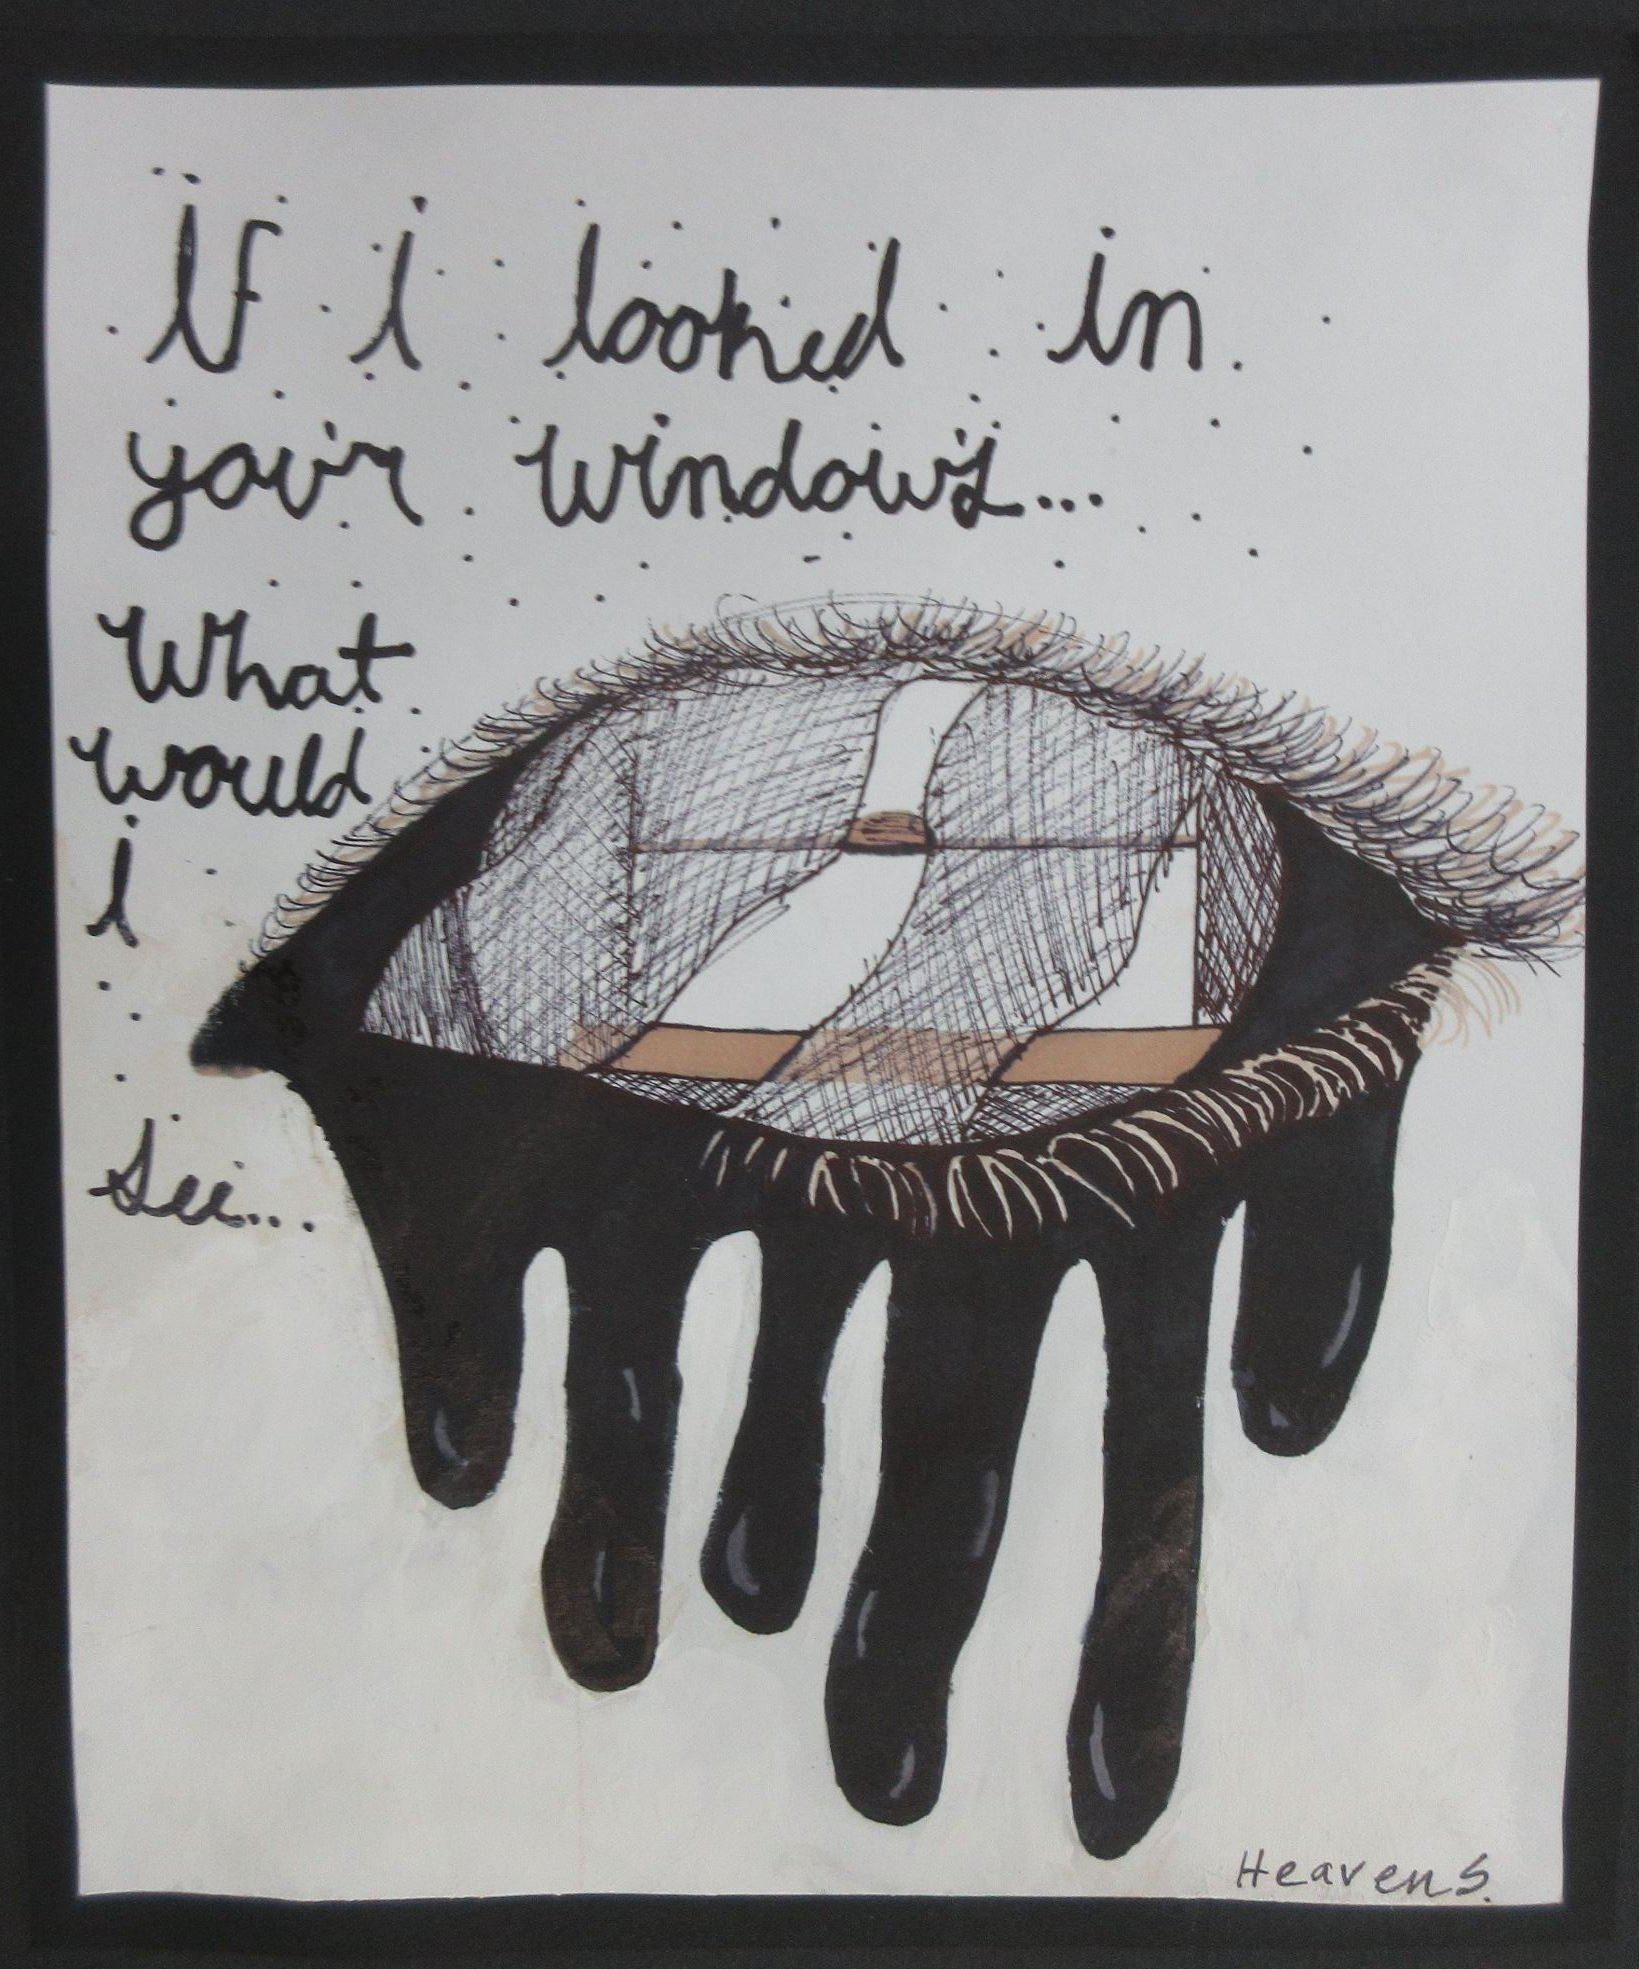 If i looked in
you'r window's...
What
would
i
see...
Heaven S.